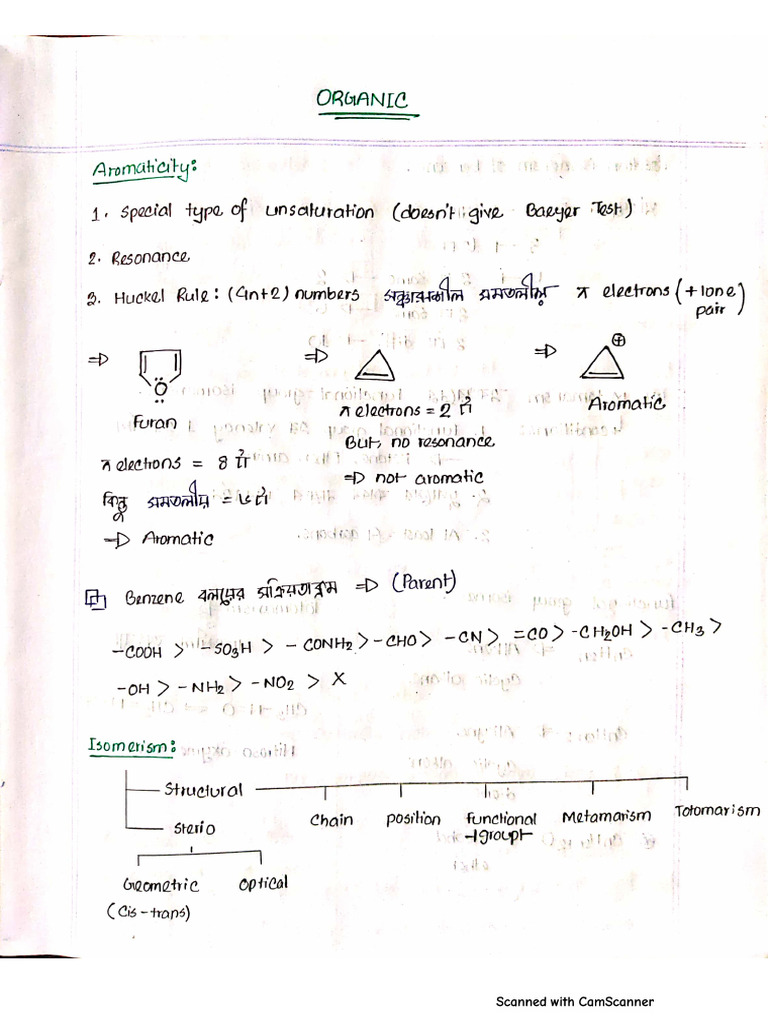 ORGANIC
Aromaticity:
1. Special type of unsaturation (doesn't give Baeyer Test)
2. Resonance
3. Huckel Rule: (4n+2) numbers সঞ্চারণশীল সমতলীয় π electrons (+ lone pair)
⇒ ⇒ ⇒ ⊕
Ö
Furan
π electrons = 8 টা
কিন্তু সমতলীয় = ৬টা
⇒ Aromatic
π electrons = 2 টা
But, no resonance
⇒ not aromatic
Aromatic
Benzene বলয়ের সক্রিয়তাক্রম ⇒ (Parent)
-COOH > -SO3H > -CONH2 > -CHO > -CN > =CO > -CH2OH > -CH3 >
-OH > -NH2 > -NO2 > X
Isomerism:
Structural
Chain position functional group Metamarism Totomarism
Sterio
Geometric optical
(Cis-trans)
Scanned with CamScanner